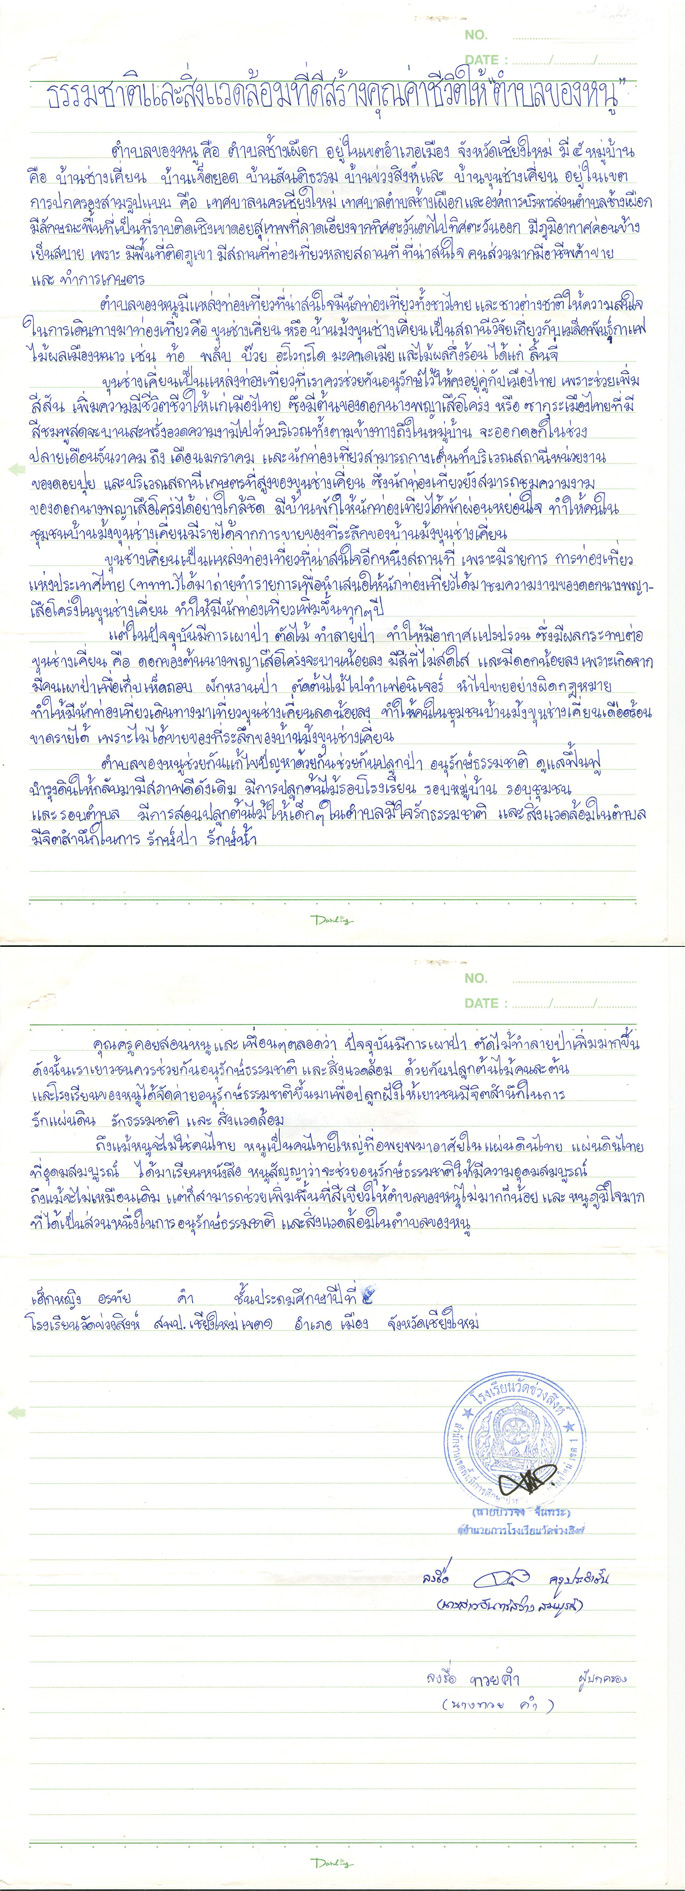 NO.
DATE : ......../......../........
ธรรมชาติและสิ่งแวดล้อมที่ดีสร้างคุณค่าชีวิตให้ "ตำบลของหนู"
ตำบลของหนู คือ ตำบลช้างเผือก อยู่ในเขตอำเภอเมือง จังหวัดเชียงใหม่ มี ๕ หมู่บ้าน
คือ บ้านช่างเคี่ยน บ้านเจ็ดยอด บ้านสันติธรรม บ้านข่วงสิงห์และ บ้านขุนช่างเคี่ยน อยู่ในเขต
การปกครองสามรูปแบบ คือ เทศบาลนครเชียงใหม่ เทศบาลตำบลช้างเผือกและองค์การบริหารส่วนตำบลช้างเผือก
มีลักษณะพื้นที่เป็นที่ราบติดเชิงเขาดอยสุเทพที่ลาดเอียงจากทิศตะวันตกไปทิศตะวันออก มีภูมิอากาศค่อนข้าง
เย็นสบาย เพราะ มีพื้นที่ติดภูเขา มีสถานที่ท่องเที่ยวหลายสถานที่ ที่น่าสนใจ คนส่วนมากมีอาชีพค้าขาย
และ ทำการเกษตร
ตำบลของหนูมีแหล่งท่องเที่ยวที่น่าสนใจมีนักท่องเที่ยวทั้งชาวไทย และชาวต่างชาติให้ความสนใจ
ในการเดินทางมาท่องเที่ยวคือ ขุนช่างเคี่ยน หรือ บ้านม้งขุนช่างเคี่ยนเป็นสถานีวิจัยเกี่ยวกับเมล็ดพันธุ์กาแฟ
ไม้ผลเมืองหนาว เช่น ท้อ พลับ บ๊วย อะโวกะโด มะคาเดเมีย และไม้ผลกึ่งร้อน ได้แก่ ลิ้นจี่
ขุนช่างเคี่ยนเป็นแหล่งท่องเที่ยวที่เราควรช่วยกันอนุรักษ์ไว้ให้คงอยู่คู่กับเมืองไทย เพราะช่วยเพิ่ม
สีสัน เพิ่มความมีชีวิตชีวาให้แก่เมืองไทย ซึ่งมีต้นของดอกนางพญาเสือโคร่ง หรือ ซากุระเมืองไทยที่มี
สีชมพูสดจะบานสะพรั่งอวดความงามไปทั่วบริเวณทั้งตามข้างทางถึงในหมู่บ้าน จะออกดอกในช่วง
ปลายเดือนธันวาคม ถึง เดือนมกราคม และนักท่องเที่ยวสามารถกางเต็นท์บริเวณสถานีหน่วยงาน
ของดอยปุย และบริเวณสถานีเกษตรที่สูงของขุนช่างเคี่ยน ซึ่งนักท่องเที่ยวยังสามารถชมความงาม
ของดอกนางพญาเสือโคร่งได้อย่างใกล้ชิด มีบ้านพักให้นักท่องเที่ยวได้พักผ่อนหย่อนใจ ทำให้คนใน
ชุมชนบ้านม้งขุนช่างเคี่ยนมีรายได้จากการขายของที่ระลึกของบ้านม้งขุนช่างเคี่ยน
ขุนช่างเคี่ยนเป็นแหล่งท่องเที่ยวที่น่าสนใจอีกหนึ่งสถานที่ เพราะมีรายการ การท่องเที่ยว
แห่งประเทศไทย (ททท.)ได้มาถ่ายทำรายการเพื่อนำเสนอให้นักท่องเที่ยวได้มาชมความงามของดอกนางพญา-
เสือโคร่งในขุนช่างเคี่ยน ทำให้มีนักท่องเที่ยวเพิ่มขึ้นทุกๆปี
แต่ในปัจจุบันมีการเผาป่า ตัดไม้ ทำลายป่า ทำให้มีอากาศแปรปรวน ซึ่งมีผลกระทบต่อ
ขุนช่างเคี่ยน คือ ดอกของต้นนางพญาเสือโคร่งจะบานน้อยลง มีสีที่ไม่สดใส และมีดอกน้อยลง เพราะเกิดจาก
มีคนเผาป่าเพื่อเก็บเห็ดถอบ ผักหวานป่า ตัดต้นไม้ไปทำเฟอนิเจอร์ นำไปขายอย่างผิดกฎหมาย
ทำให้มีนักท่องเที่ยวเดินทางมาเที่ยวขุนช่างเคี่ยนลดน้อยลง ทำให้คนในชุมชนบ้านม้งขุนช่างเคี่ยนเดือดร้อน
ขาดรายได้ เพราะไม่ได้ขายของที่ระลึกของบ้านม้งขุนช่างเคี่ยน
ตำบลของหนูช่วยกันแก้ไขปัญหาด้วยกันช่วยกันปลูกป่า อนุรักษ์ธรรมชาติ ดูแลฟื้นฟู
บำรุงดินให้กลับมามีสภาพดีดังเดิม มีการปลูกต้นไม้รอบโรงเรียน รอบหมู่บ้าน รอบชุมชน
และรอบตำบล มีการสอนปลูกต้นไม้ให้เด็กๆในตำบลมีใจรักธรรมชาติ และสิ่งแวดล้อมในตำบล
มีจิตสำนึกในการ รักษ์ป่า รักษ์น้ำ
NO.
DATE : ......../......../........
คุณครูคอยสอนหนูและเพื่อนๆตลอดว่า ปัจจุบันมีการเผาป่า ตัดไม้ทำลายป่าเพิ่มมากขึ้น
ดังนั้นเราเยาวชนควรช่วยกันอนุรักษ์ธรรมชาติ และสิ่งแวดล้อม ด้วยกันปลูกต้นไม้คนละต้น
และโรงเรียนของหนูได้จัดค่ายอนุรักษ์ธรรมชาติขึ้นมาเพื่อปลูกฝังให้เยาวชนมีจิตสำนึกในการ
รักแผ่นดิน รักธรรมชาติ และ สิ่งแวดล้อม
ถึงแม้หนูจะไม่ใช่คนไทย หนูเป็นคนไทยใหญ่ที่อพยพมาอาศัยในแผ่นดินไทย แผ่นดินไทย
ที่อุดมสมบูรณ์ ได้มาเรียนหนังสือ หนูสัญญาว่าจะช่วยอนุรักษ์ธรรมชาติให้มีความอุดมสมบูรณ์
ถึงแม้จะไม่เหมือนเดิม แต่ก็สามารถช่วยเพิ่มพื้นที่สีเขียวให้ตำบลของหนูไม่มากก็น้อย และ หนูภูมิใจมาก
ที่ได้เป็นส่วนหนึ่งในการอนุรักษ์ธรรมชาติ และสิ่งแวดล้อมในตำบลของหนู
เด็กหญิง อรทัย คำ ชั้นประถมศึกษาปีที่
โรงเรียนวัดข่วงสิงห์ สพป.เชียงใหม่ เขต๑ อำเภอ เมือง จังหวัดเชียงใหม่
โรงเรียนวัดข่วงสิงห์
ผู้อำนวยการโรงเรียนวัดข่วงสิงห์
ลงชื่อ ครูประจำชั้น
ลงชื่อ ทวยคำ ผู้ปกครอง
(นางทวย คำ)